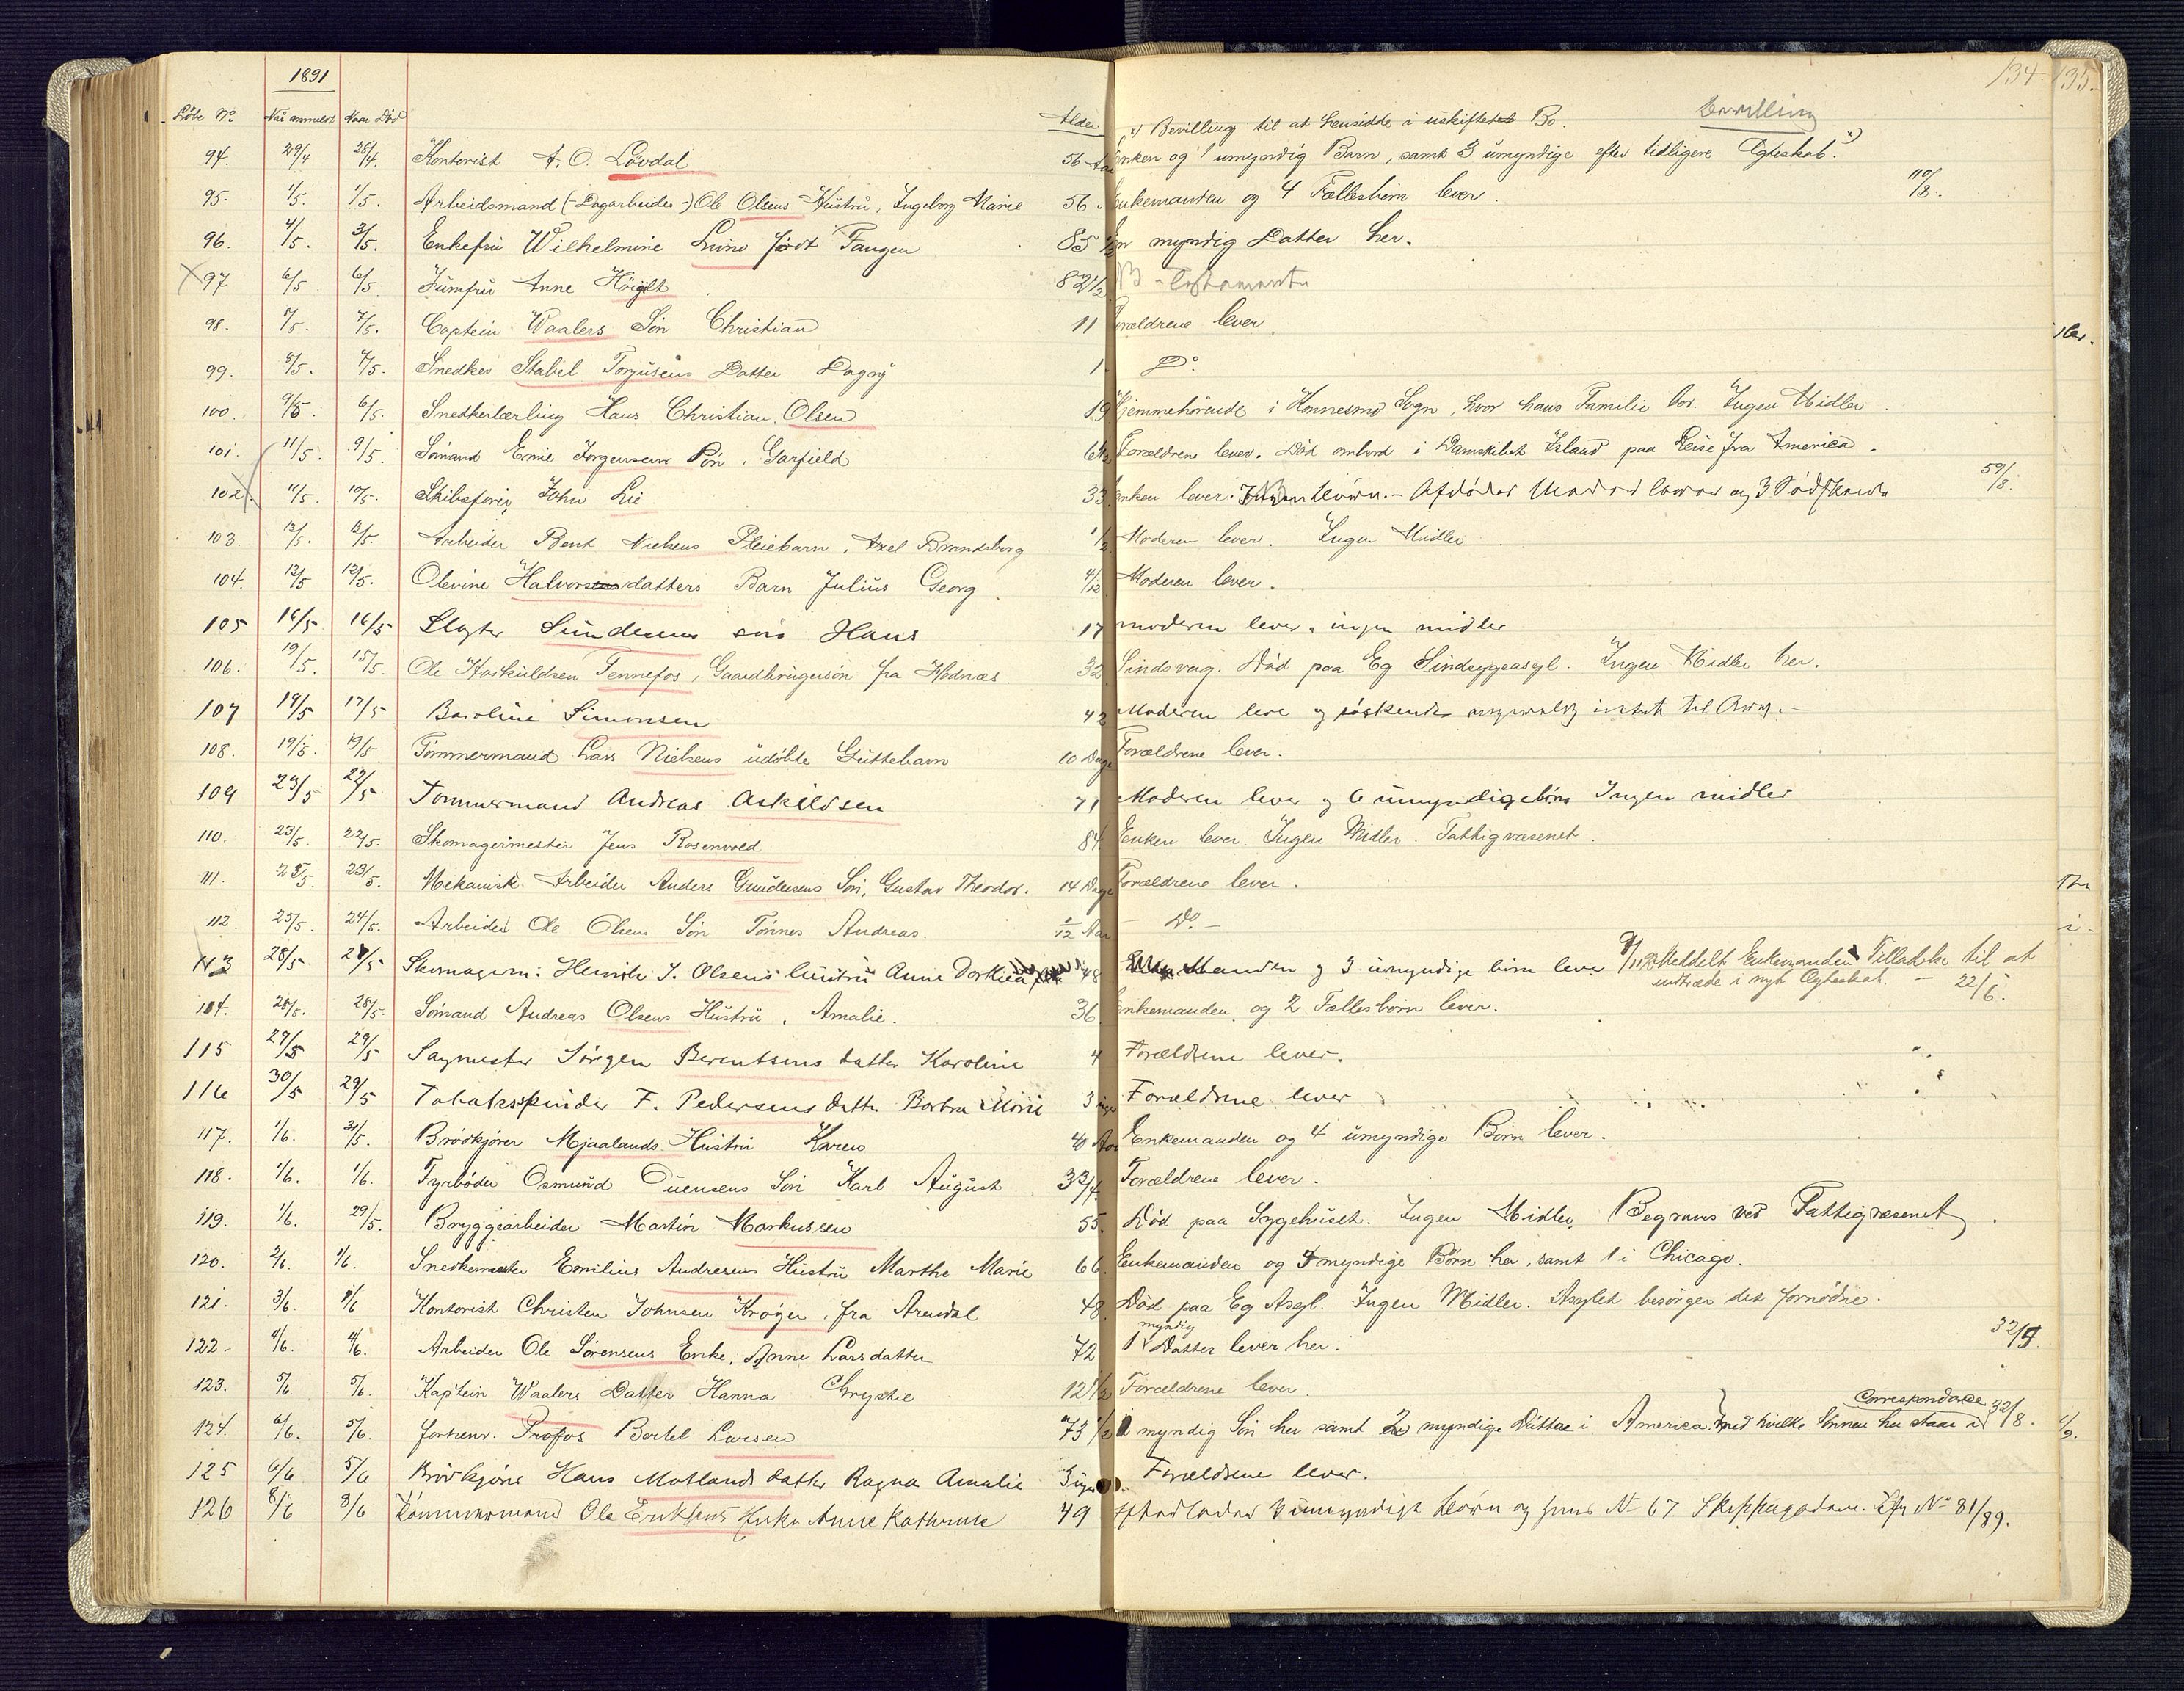 134 135.
1891
Löbe No. Naar anmeldt Naar Död Alder
x) Bevilling til at hensidde i uskiftet Bo. Bevilling
94. 29/4 28/4. Kontorist A. O. Lövdal 56 Aar Enken og 1 umyndig Barn, samt 3 umyndige efter tidligere Ægteskab. x)
95. 1/5. 1/5. Arbeidsmand (-Dagarbeider-) Ole Olsens Hustru, Ingeborg Marie 56. Enkemanden og 4 Fællesbörn lever. 110/8.
96. 4/5. 3/5. Enkefru Wilhelmine Luno födt Fangen 85 1/2 En myndig Datter her.
97 6/5 6/5. Jumfru Anne 82 1/2 Testamente
98. 7/5. 7/5. Captein Waalers Sön Christian 11 Forældrene lever.
99. 8/5. 7/5. Snedker Stabel Torjusens Datter Dagny 1 Do.
100. 9/5. 6/5. Snedkerlærling Hans Christian Olsen 19 Hjemmehörende i Konnesmo Sogn, hvor hans Familie bor. Ingen Midler.
101. 11/5. 9/5. Sömand Emil Jörgensens Sön, Garfield Forældrene lever. Död ombord i Dampskibet Island paa Reise fra America.
102. 11/5. 10/5. Skibsförer John Lie 33 Enken lever. Ingen Börn. - Afdödes Moder lever og 3 Södskende 59/8.
103. 13/5. 12/5. Arbeider Bent Nielsens Pleiebarn, Axel Brandsborg 1/2 Moderen lever. Ingen Midler.
104. 13/5 12/5. Olevine Halvorsdatters Barn Julius Georg. 4/12 Moderen lever.
105 16/5 16/5 Slagter Sundesens sön Hans 17 moderen lever, ingen midler
106. 19/5. 15/5. Ole Hoskuldsen Tennefos, Gaardbrugersön fra Hodnæs. 32 Sindssvag. Död paa Eg Sindssygeasyl. Ingen Midler her.
107 19/5 17/5 Baroline Simonsen 42 Moderen leve og söskende intet til Arv.
108. 19/5. 19/5 Tömmermand Lars Nielsens udöbte Guttebarn 10 Dage Forældrene lever.
109 23/5 22/5 Tömmermand Andreas Askildsen 71 Moderen lever og 6 umyndige börn Ingen midler
110. 23/5. 22/5. Skomagermester Jens Rosenvold 84. Enken lever. Ingen Midler. Fattigvæsenet.
111. 25/5. 23/5. Mekanisk Arbeider Anders Gundersens Sön, Gustav Theodor. 14 Dage Forældrene lever.
112. 25/5. 24/5. Arbeider Ole Olsens Sön Tönnes Andreas. 1/12 Aar - Do. -
113 28/5 27/5 Skomagerm. Henrik J. Olsens hustru Anne Dorthea 48 Manden og 3 umyndige börn lever 9/11 92 Meddelt Enkemanden Tilladelse til at
indtræde i nyt Ægteskab. - 22/6.
114. 28/5. 28/5. Sömand Andreas Olsens Hustru, Amalie. 36. Enkemanden og 2 Fællesbörn lever.
115 29/5 29/5 Sagmester Jörgen Berentsens datter Karoline 4 Forældrene lever.
116 30/5 29/5 Tobaksspinder F. Pedersens datter Barbra Marie 3 uger Forældrene lever
117. 1/6. 31/5. Brödkjörer Mjaalands Hustru Karen 40 Aar Enkemanden og 4 umyndige Börn lever.
118. 1/6. 1/6. Fyrböder Osmund Ouensens Sön Karl August 3 2/4. Forældrene lever.
119. 1/6. 29/5. Bryggearbeider Martin Markussen 55. Död paa Sygehuset. Ingen Midler. Begraves ved Fattigvæsenet.
120. 2/6. 1/6. Snedkermester Emilius Andresens Hustru Marthe Marie 66. Enkemanden og 4 myndige Börn her, samt 1 i Chicago.
121. 3/6. 1/6 Kontorist Christen Johnsen Kröger, fra Arendal 48. Död paa Eg Asyl. Ingen Midler. Asylet besörger det fornödne.
122. 4/6. 4/6. Arbeider Ole Sörensens Enke, Anne Larsdatter 72 1 myndig Datter lever her. 32/9.
123. 5/6 5/6. Kaptein Waalers Datter Hanna Chrystie 12 1/2 Forældrene lever.
124. 6/6. 5/6. forhenv. Profos Bertel Larsen 73 1/2 1 myndig Sön her samt 2 myndige Döttre i America, med hvilke Sönnen her staar i Correspondance 32/8.
125 6/6 5/6 Brödkjörer Hans Motlands datter Ragna Amalie 3 uger Forældrene lever.
126 8/6 8/6 Tömmermand Ole Eriksens Enke Anne Kathrine 49 efterlader 3 umyndige Börn og huus No 67 Skippergaden. Cfr No 81/89.